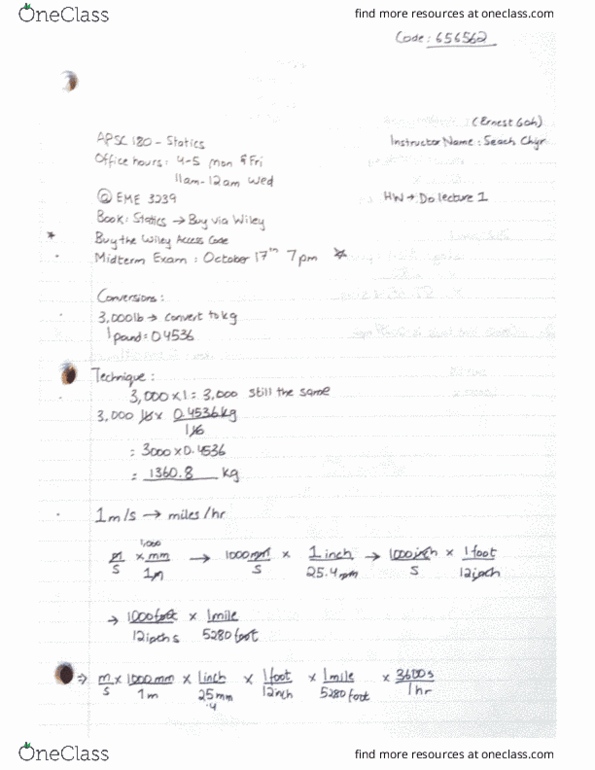 OneClass
find more resources at oneclass.com
Code: 656562
(Ernest Goh)
APSC 180 - Statics
Instructor Name: Seach Chyr
Office hours: 4-5 Mon & Fri
11am-12am Wed
@ EME 3239
HW → Do lecture 1
Book: Statics → Buy via Wiley
* Buy the Wiley Access Code
Midterm Exam: October 17th 7pm ☆
Conversions:
3,000lb → convert to kg
1 pound = 0.4536
Technique:
3,000 x 1 = 3,000 still the same
3,000 lb x 0.4536 kg
1 lb
= 3000 x 0.4536
= 1360.8 kg
1 m/s → miles/hr
m/s x 1,000 mm/1m → 1000mm/s x 1 inch/25.4mm → 1000inch/s x 1 foot/12inch
→ 1000foot/12inch s x 1mile/5280foot
⇒ m/s x 1000mm/1m x 1inch/25.4mm x 1foot/12inch x 1mile/5280foot x 3600s/1hr
OneClass
find more resources at oneclass.com